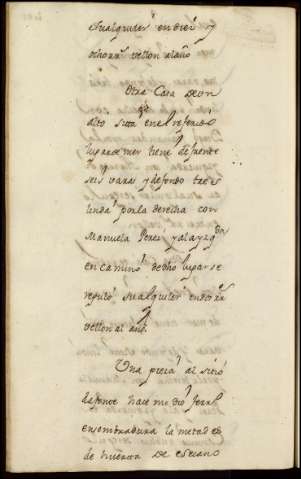 su alquiler en diez y
ocho rrs vellon al año
Otra Casa de un
alto sita en el referido
lugar de mer tiene de frente
seis varas y de fondo tres
linda por la derecha con
Manuela Perez y a la yzqda
en camino dho lugar se
reguló su alquiler en rrs
vellon al año
Una pieza al sitio
de fonte hace medio ferral
en sembradura la metad es
de huerta de secano